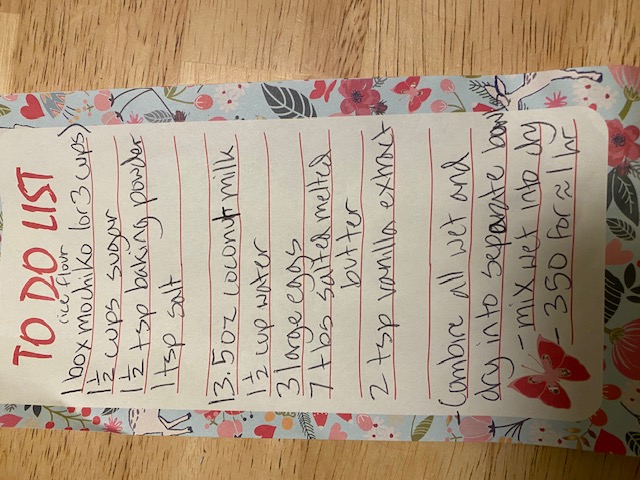 TO DO LIST
rice flour
1 box mochiko (or 3 cups)
1 1/2 cups sugar
1 1/2 tsp baking powder
1 tsp salt
13.5oz coconut milk
1 1/2 cup water
3 large eggs
7 tbs salted melted
butter
2 tsp vanilla extract
- Combine all wet and
dry into separate bowl
- mix wet into dry
- 350 for ≈ 1 hr